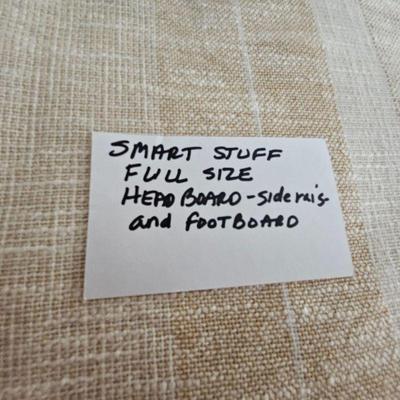 SMART STUFF
FULL SIZE
HEADBOARD - Siderails
and FOOTBOARD